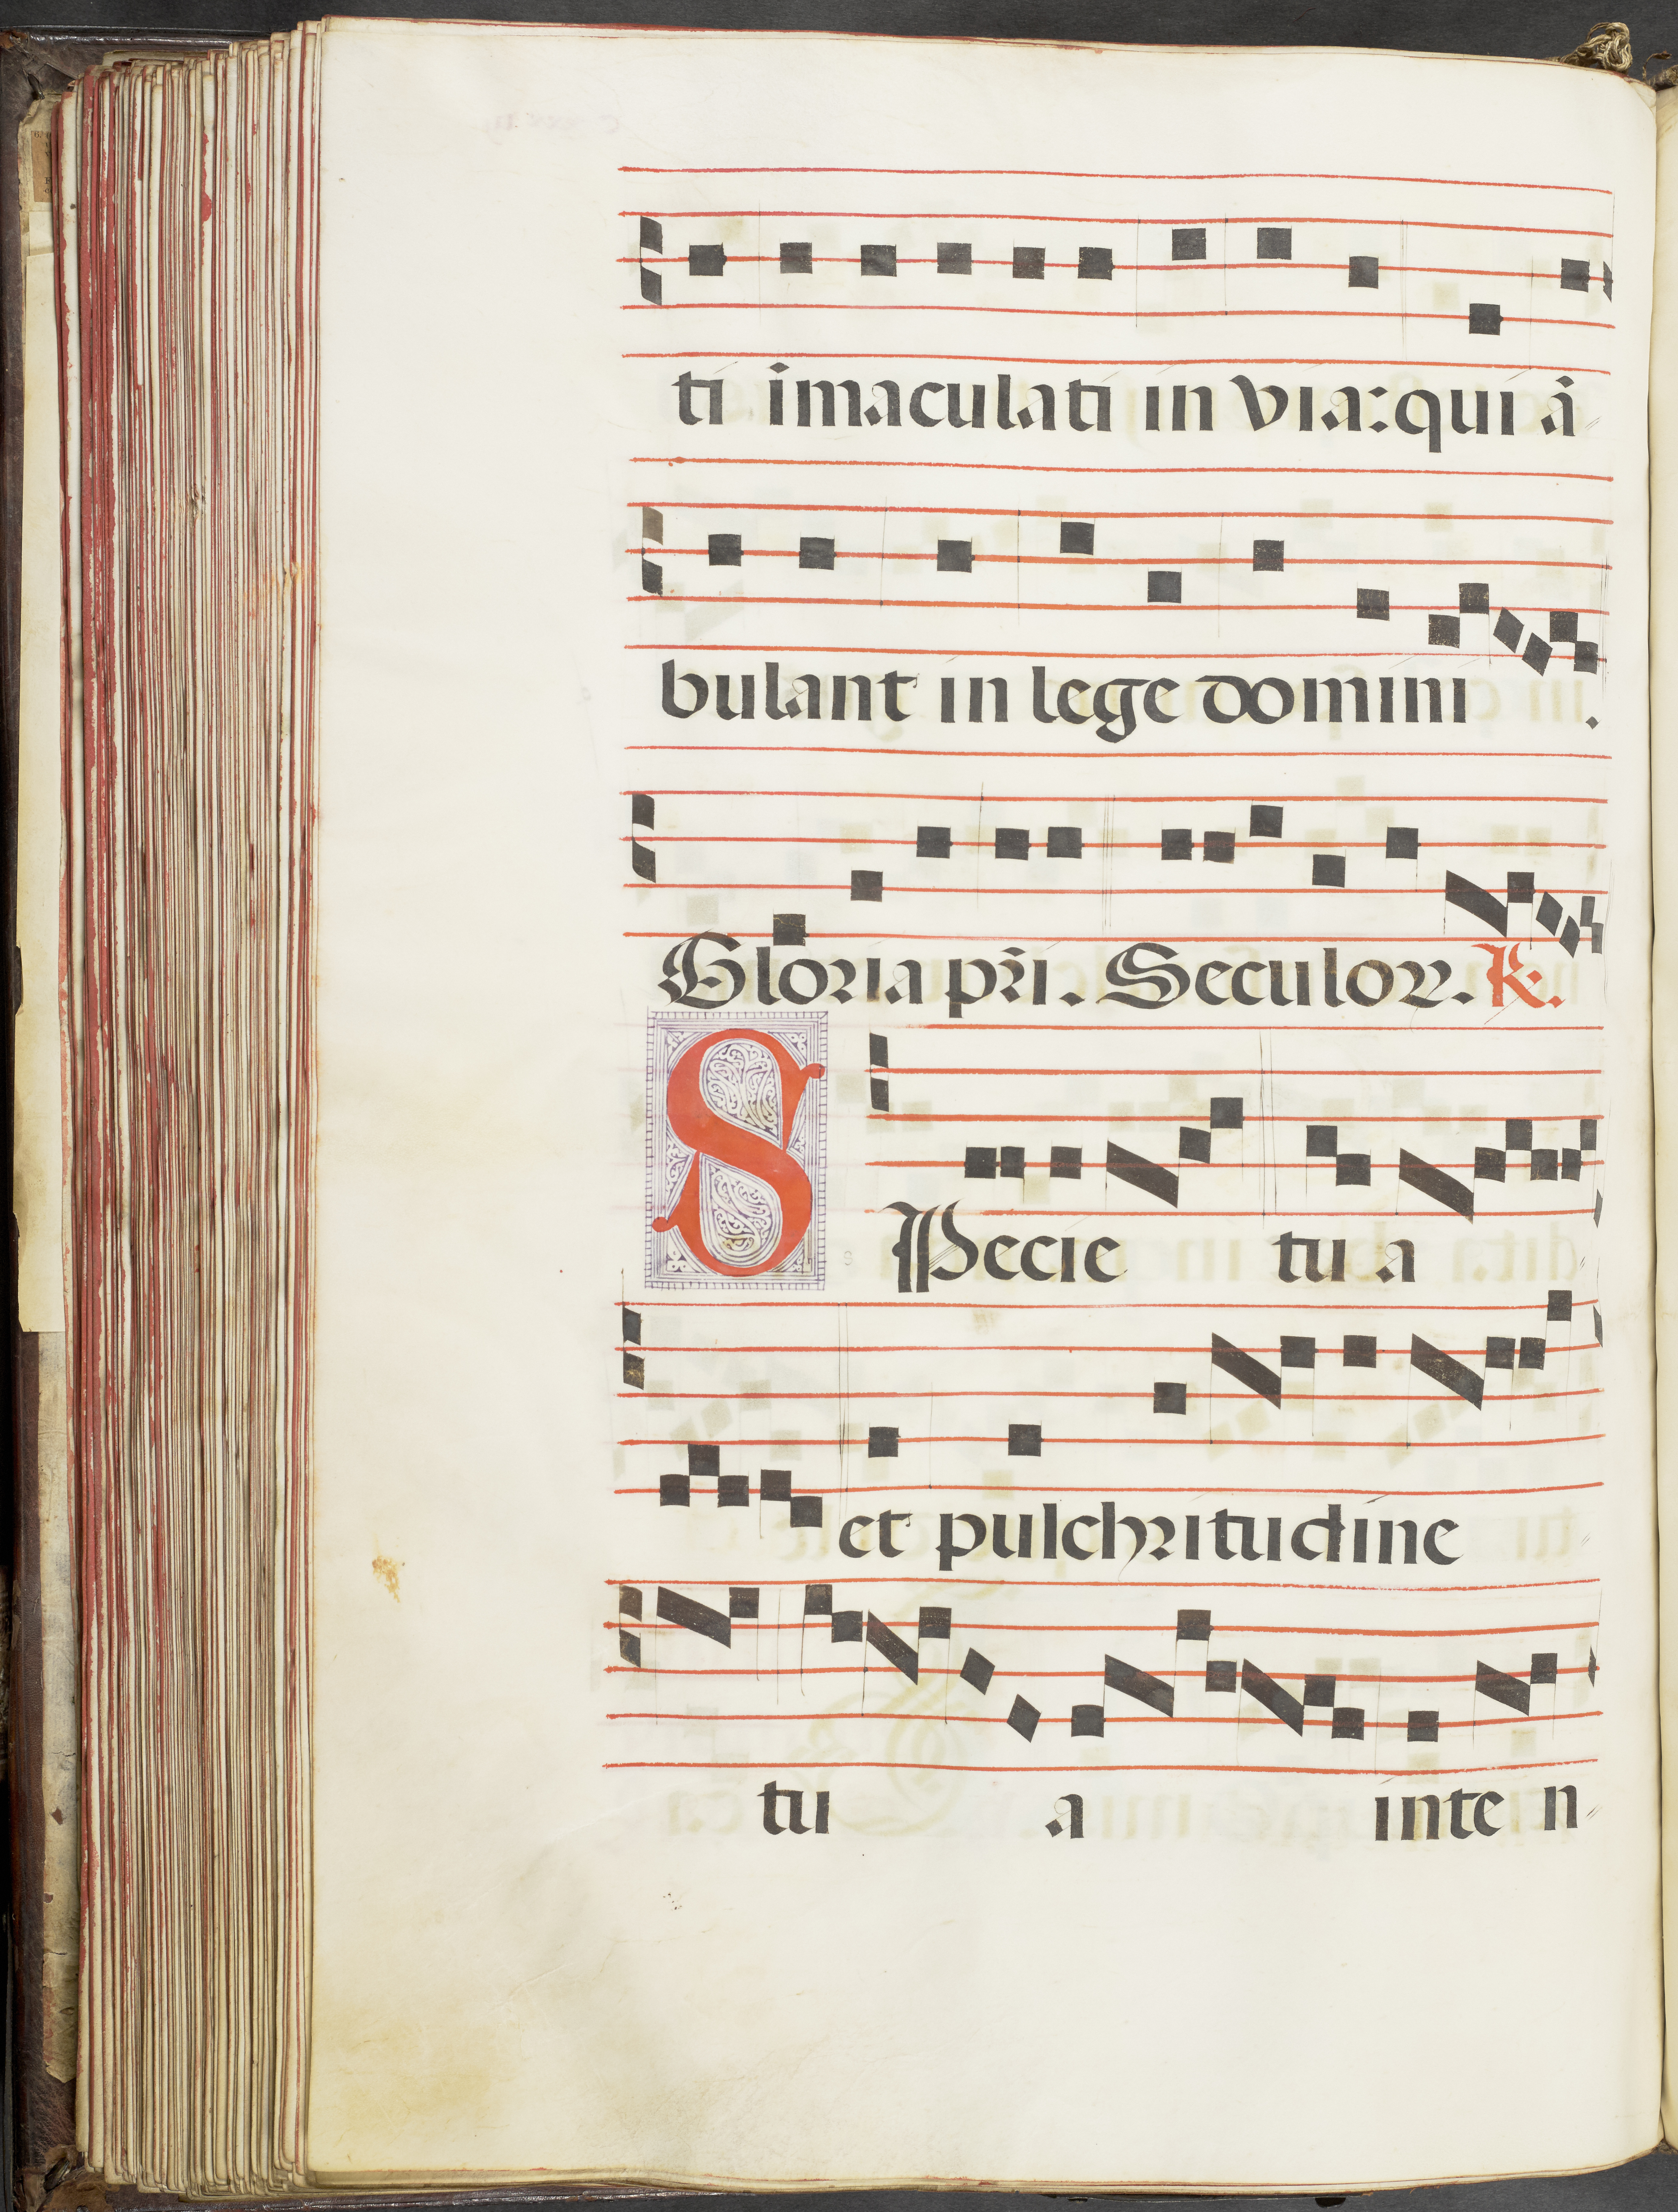 ti īmaculati in via: qui ā
bulant in lege domini.
Gloria pr̄i. Seculoꝝ. R.
SPecie tua
et pulchritudine
tu a inten